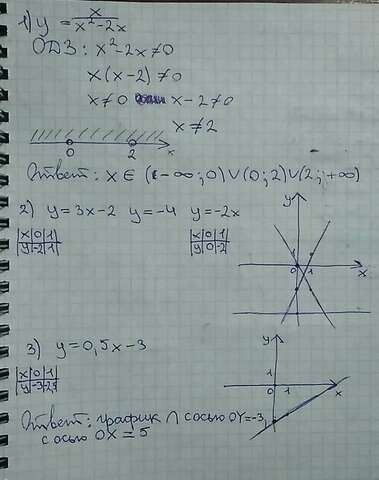 1) y = x/(x²-2x)
ОДЗ: x²-2x≠0
x(x-2)≠0
x≠0 x-2≠0
x≠2
0 2 x
Ответ: x∈(-∞;0)∪(0;2)∪(2;+∞)
2) y=3x-2 y=-4 y=-2x
x|0|1| x|0|1|
y|-2|1| y|0|-2|
y
0 1 x
3) y=0,5x-3
y
x|0|1| 1
y|-3|-2,5 0 1 x
Ответ: график ∩ с осью OY=-3,
с осью OX = 5